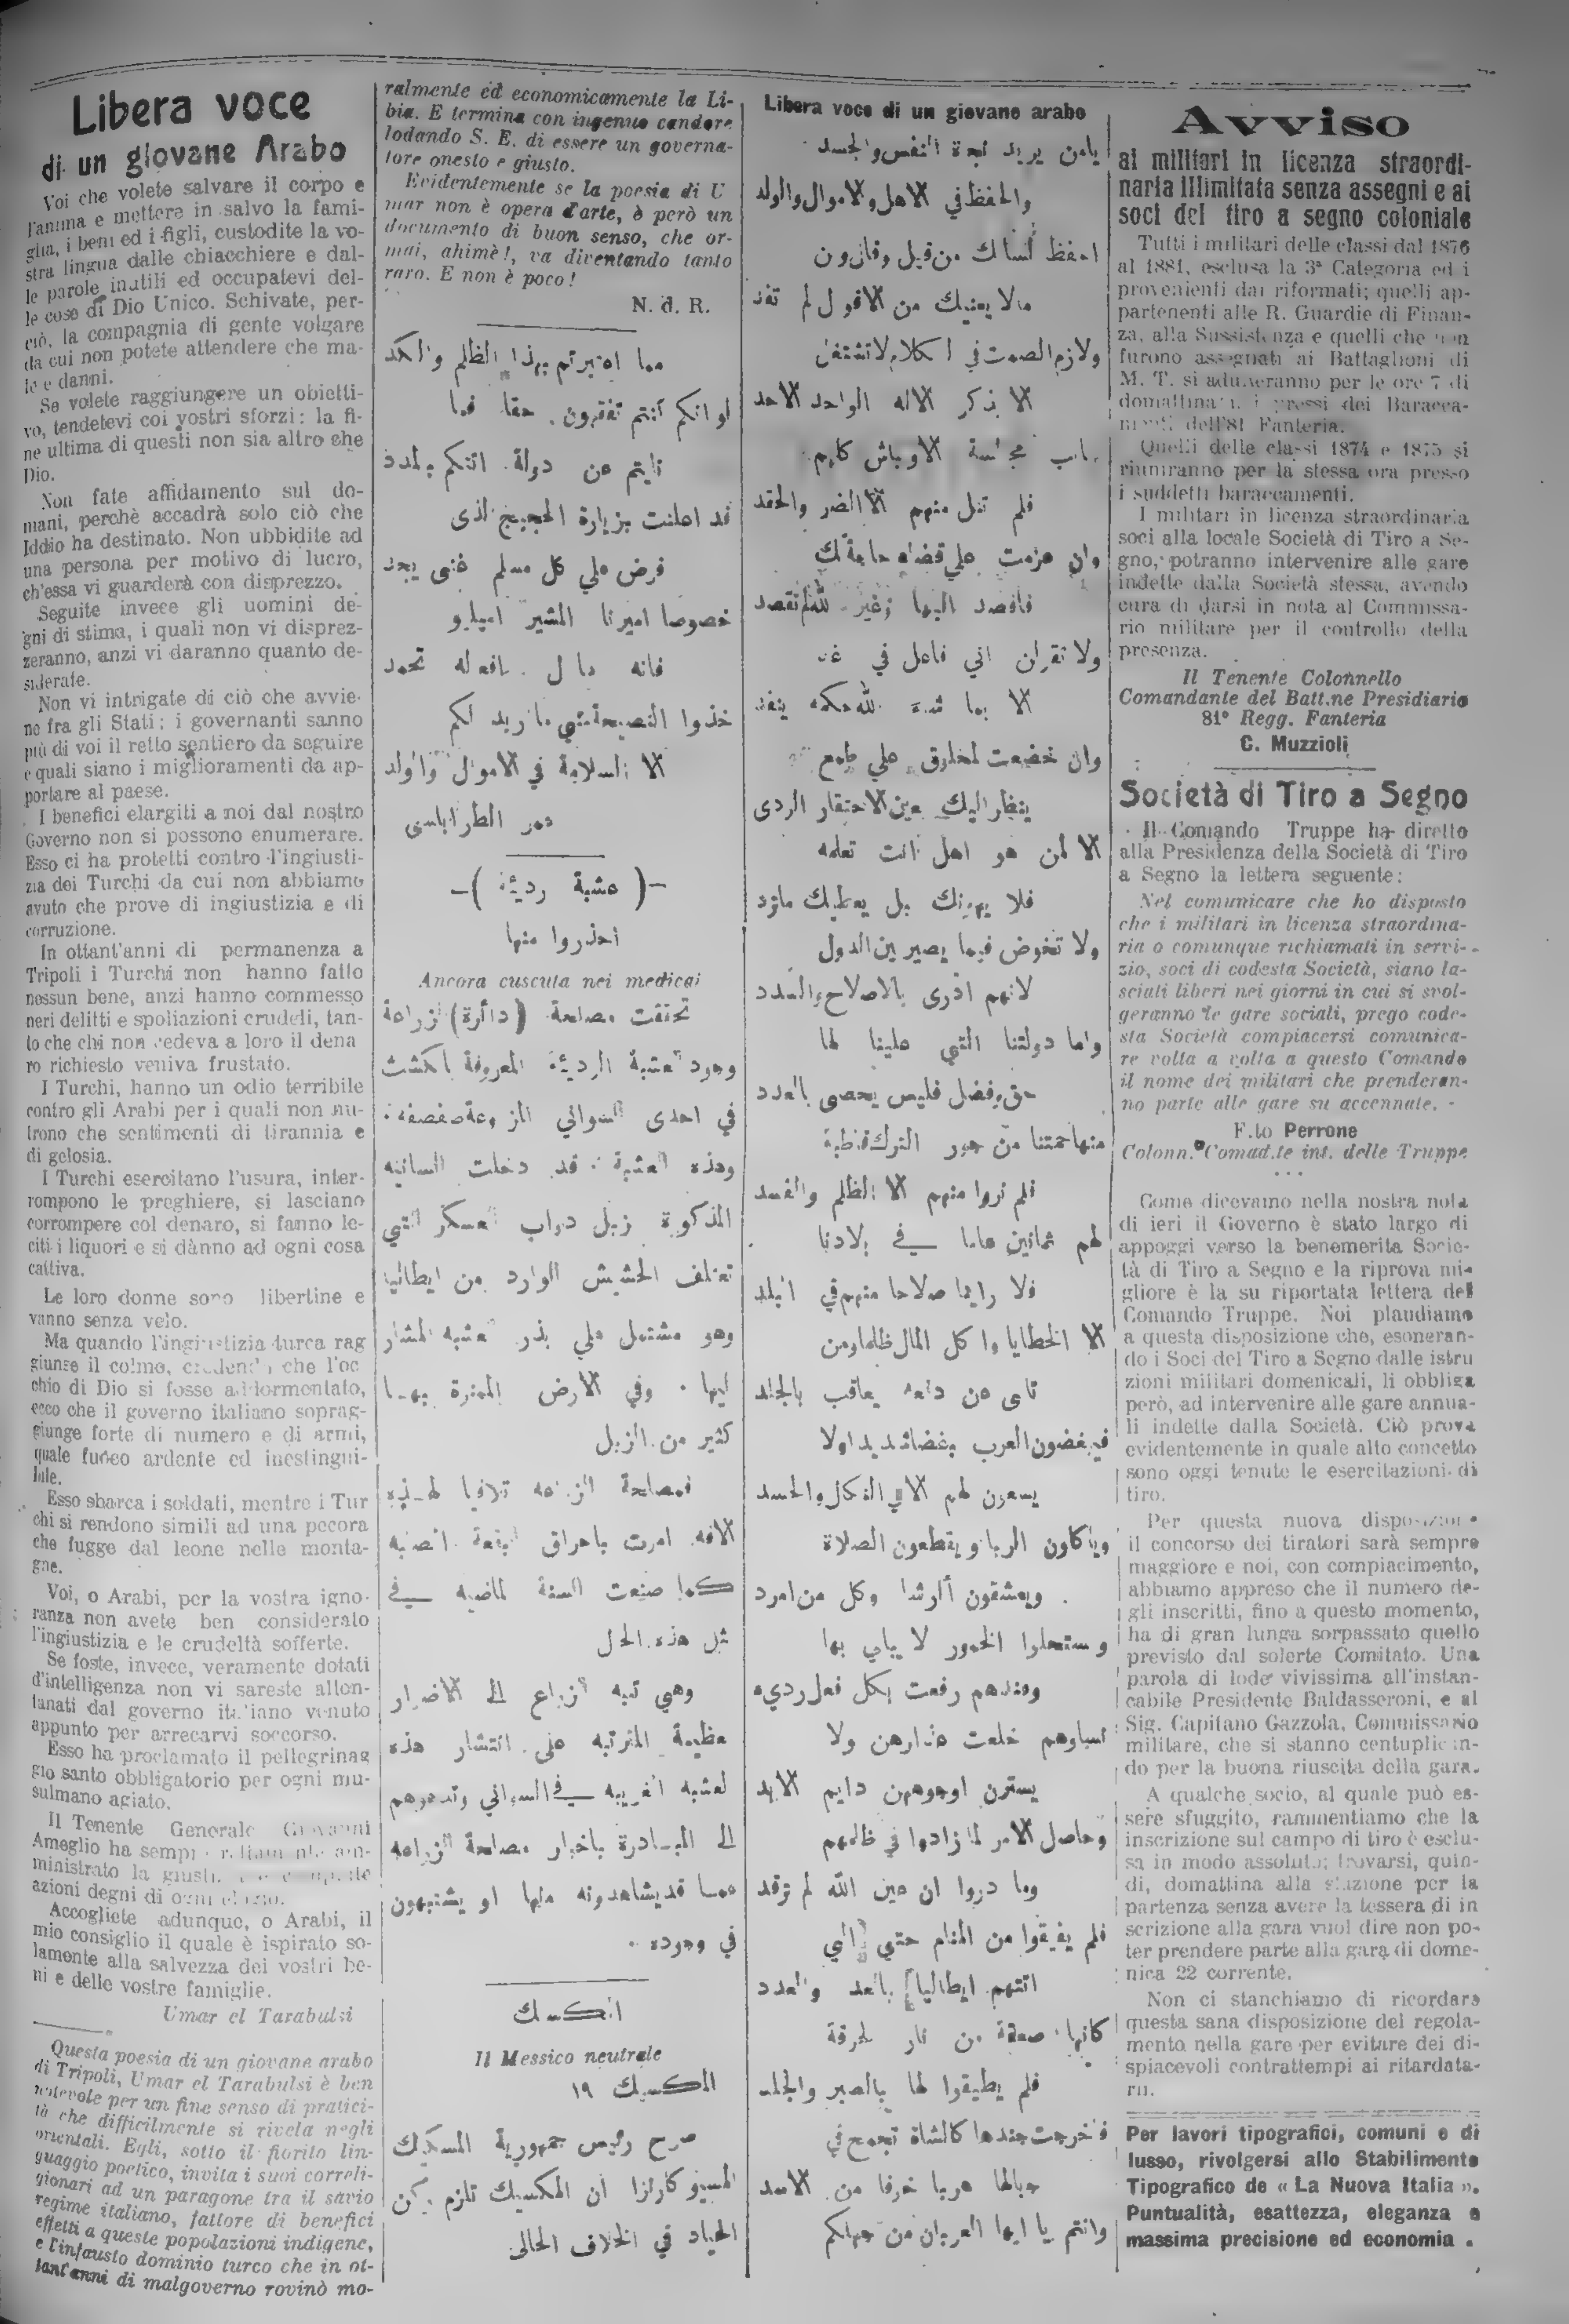 Libera voce
di un giovane Arabo
Voi che volete salvare il corpo e
l'anima e mettere in salvo la fami-
glia, i beni ed i figli, custodite la vo-
stra lingua dalle chiacchiere e dal-
le parole inutili ed occupatevi del-
le cose di Dio Unico. Schivate, per-
ciò, la compagnia di gente volgare
da cui non potete attendere che ma-
le e danni.
Se volete raggiungere un obietti-
vo, tendetevi coi vostri sforzi: la fi-
ne ultima di questi non sia altro che
Dio.
Non fate affidamento sul do-
mani, perchè accadrà solo ciò che
Iddio ha destinato. Non ubbidite ad
una persona per motivo di lucro,
ch'essa vi guarderà con disprezzo.
Seguite invece gli uomini de-
gni di stima, i quali non vi disprez-
zeranno, anzi vi daranno quanto de-
siderate.
Non vi intrigate di ciò che avvie-
ne fra gli Stati; i governanti sanno
più di voi il retto sentiero da seguire
e quali siano i miglioramenti da ap-
portare al paese.
I benefici elargiti a noi dal nostro
Governo non si possono enumerare.
Esso ci ha protetti contro l'ingiusti-
zia dei Turchi da cui non abbiamo
avuto che prove di ingiustizia e di
corruzione.
In ottant'anni di permanenza a
Tripoli i Turchi non hanno fatto
nessun bene, anzi hanno commesso
neri delitti e spoliazioni crudeli, tan-
to che chi non cedeva a loro il dena
ro richiesto veniva frustato.
I Turchi, hanno un odio terribile
contro gli Arabi per i quali non nu-
trono che sentimenti di tirannia e
di gelosia.
I Turchi esercitano l'usura, inter-
rompono le preghiere, si lasciano
corrompere col denaro, si fanno le-
citi i liquori e si dànno ad ogni cosa
cattiva.
Le loro donne sono libertine e
vanno senza velo.
Ma quando l'ingiustizia turca rag
giunse il colmo, credendo che l'oc
chio di Dio si fosse addormentato,
ecco che il governo italiano soprag-
giunge forte di numero e di armi,
quale fuoco ardente ed inestingui-
bile.
Esso sbarca i soldati, mentre i Tur
chi si rendono simili ad una pecora
che fugge dal leone nelle monta-
gne.
Voi, o Arabi, per la vostra igno-
ranza non avete ben considerato
l'ingiustizia e le crudeltà sofferte.
Se foste, invece, veramente dotati
d'intelligenza non vi sareste allon-
tanati dal governo italiano venuto
appunto per arrecarvi soccorso.
Esso ha proclamato il pellegrinag
gio santo obbligatorio per ogni mu-
sulmano agiato.
Il Tenente Generale Giovanni
Ameglio ha
ministrato la
azioni degni di ogni elogio.
Accogliete adunque, o Arabi, il
mio consiglio il quale è ispirato so-
lamente alla salvezza dei vostri be-
ni e delle vostre famiglie.
Umar el Tarabulsi
Questa poesia di un giovane arabo
di Tripoli, Umar el Tarabulsi è ben
notevole per un fine senso di pratici-
tà che difficilmente si rivela negli
orientali. Egli, sotto il fiorito lin-
guaggio poetico, invita i suoi correli-
gionari ad un paragone tra il savio
regime italiano, fattore di benefici
effetti a queste popolazioni indigene,
e l'infausto dominio turco che in ot-
tant'anni di malgoverno rovinò mo-
ralmente ed economicamente la Li-
bia. E termina con ingenuo candore
lodando S. E. di essere un governa-
tore onesto e giusto.
Evidentemente se la poesia di U
mar non è opera d'arte, è però un
documento di buon senso, che or-
mai, ahimè!, va diventando tanto
raro. E non è poco!
N. d. R.
مما اعتبرتم بهذا الظلم والنكد
لو انكم أنتم تفقهون حقا فما
نايتم عن دولة اتتكم بالمدد
قد اعلنت بزيارة الحجيج الذى
فرض علي كل مسلم غنى يجد
خصوصا اميرنا المشير اميليو
فانه عادل بافعاله تحمد
خذوا النصيحة مني ما اريد لكم
الا السلامة في الاموال والولد
عمر الطرابلسى
-( عشبة رديئة )-
احذروا منها
Ancora cuscuta nei medicai
تحققت مصلحة (دائرة) الزراعة
وجود العشبة الرديئة المعروفة بالكشت
في احدى السواني المزروعة صفصفه
وهذه العشبة قد دخلت السانيه
المذكورة بزبل دواب العسكر التي
تعتلف الحشيش الوارد من ايطاليا
وهو مشتمل علي بذر العشبه المشار
اليها وفي الارض المبذرة بها
كثير من الزبل
فمصلحة الزراعه تلافيا لهذه
الافه امرت باحراق البقعة المصابه
كما صنعت السنة الماضيه في
مثل هذه الحال
وهي تنبه الزراع الى الاضرار
عظيمة المترتبه على انتشار هذه
العشبه الغريبه في السواني وتدعوهم
الى المبادرة باخبار مصلحة الزراعه
عما قد يشاهدونه منها او يشتبهون
في وجوده
المكسيك
Il Messico neutrale
المكسيك ١٩
صرح رئيس جمهورية المسكيك
المسيو كارانزا ان المكسيك تلزم ركن
الحياد في الخلاف الحالى
Libera voce di un giovane arabo
يامن يريد نجاة النفس والجسد
والحفظ في الاهل والاموال والولد
احفظ لسانك من قيل وقال ون
مالا يعنيك من الاقول لم تفد
ولازم الصمت في الكلام لاتشتغل
الا بذكر الاله الواحد الاحد
جانب مجالسة الاوباش كلهم
فلم تنل منهم الا الضر والحقد
وان عزمت علي قضاء حاجة لك
فاقصد اليها وغير الله لم تقصد
ولا تقولن اني فاعل في غد
الا بما شاء الله حكمه ينفذ
وان خضعت لمخلوق علي طمع
ينظر اليك بعين الاحتقار الردى
الا لمن هو اهل انت تعلمه
فلا يهينك بل يعطيك ماترد
ولا تخوض فيما يصير بين الدول
لانهم ادرى بالاصلاح والسدد
واما دولتنا التي علينا لها
حق وفضل فليس يحصى بالعدد
منها حمتنا من جور الترك قاطبة
فلم نروا منهم الا الظلم والفسد
لهم ثمانين عاما في بلادنا
فلا راينا صلاحا منهم في البلد
الا الخطايا واكل المال ظلما ومن
تابى عن دفعه يعاقب بالجلد
فيبغضون العرب بغضا شديدا ولا
يسعون لهم الا في النكال والحسد
وياكلون الربا ويقطعون الصلاة
ويعشقون ألرشا وكل من امرد
وستحلوا الخمور لا يبالى بها
وعندهم رفعت بكل فعل رديء
نساوهم خلعت عذارهن ولا
يسترن اوجوههن دايم الابد
وحاصل الامر لما زادوا في ظلمهم
وما دروا ان عين الله لم ترقد
فلم يفيقوا من المنام حتي الي
اتتهم ايطاليا بالعد والعدد
كانها صعقة من نار لحرقة
فلم يطيقوا لها بالصبر والجلد
فخرجت جندها كالشاة تجمح في
جبالها هربا خوفا من الاسد
وانتم يا ايها العربان من جهلكم
Avviso
ai militari in licenza straordi-
naria illimitata senza assegni e ai
soci del tiro a segno coloniale
Tutti i militari delle classi dal 1876
al 1881, esclusa la 3ª Categoria ed i
provenienti dai riformati; quelli ap-
partenenti alle R. Guardie di Finan-
za, alla Sussistenza e quelli che non
furono assegnati ai Battaglioni di
M. T. si aduneranno per le ore 7 di
domattina n. i pressi dei Baracca-
menti dell'81 Fanteria.
Quelli delle classi 1874 e 1875 si
riuniranno per la stessa ora presso
i suddetti baraccamenti.
I militari in licenza straordinaria
soci alla locale Società di Tiro a Se-
gno, potranno intervenire alle gare
indette dalla Società stessa, avendo
cura di darsi in nota al Commissa-
rio militare per il controllo della
presenza.
Il Tenente Colonnello
Comandante del Batt.ne Presidiario
81º Regg. Fanteria
C. Muzzioli
Società di Tiro a Segno
Il Comando Truppe ha diretto
alla Presidenza della Società di Tiro
a Segno la lettera seguente:
Nel comunicare che ho disposto
che i militari in licenza straordina-
ria o comunque richiamati in servi-
zio, soci di codesta Società, siano la-
sciati liberi nei giorni in cui si svol-
geranno le gare sociali, prego code-
sta Società compiacersi comunica-
re volta a volta a questo Comando
il nome dei militari che prenderan-
no parte alle gare su accennate.
F.to Perrone
Colonn. Comad.te int. delle Truppe
...
Come dicevamo nella nostra nota
di ieri il Governo è stato largo di
appoggi verso la benemerita Socie-
tà di Tiro a Segno e la riprova mi-
gliore è la su riportata lettera del
Comando Truppe. Noi plaudiamo
a questa disposizione che, esoneran-
do i Soci del Tiro a Segno dalle istru
zioni militari domenicali, li obbliga
però, ad intervenire alle gare annua-
li indette dalla Società. Ciò prova
evidentemente in quale alto concetto
sono oggi tenute le esercitazioni di
tiro.
Per questa nuova disposizione
il concorso dei tiratori sarà sempre
maggiore e noi, con compiacimento,
abbiamo appreso che il numero de-
gli inscritti, fino a questo momento,
ha di gran lunga sorpassato quello
previsto dal solerte Comitato. Una
parola di lode vivissima all'instan-
cabile Presidente Baldasseroni, e al
Sig. Capitano Gazzola, Commissario
militare, che si stanno centuplican-
do per la buona riuscita della gara.
A qualche socio, al quale può es-
sere sfuggito, rammentiamo che la
inscrizione sul campo di tiro è esclu-
sa in modo assoluto; trovarsi, quin-
di, domattina alla stazione per la
partenza senza avere la tessera di in
scrizione alla gara vuol dire non po-
ter prendere parte alla gara di dome-
nica 22 corrente.
Non ci stanchiamo di ricordare
questa sana disposizione del regola-
mento nella gare per evitare dei di-
spiacevoli contrattempi ai ritardata-
rii.
Per lavori tipografici, comuni e di
lusso, rivolgersi allo Stabilimento
Tipografico de « La Nuova Italia ».
Puntualità, esattezza, eleganza e
massima precisione ed economia .